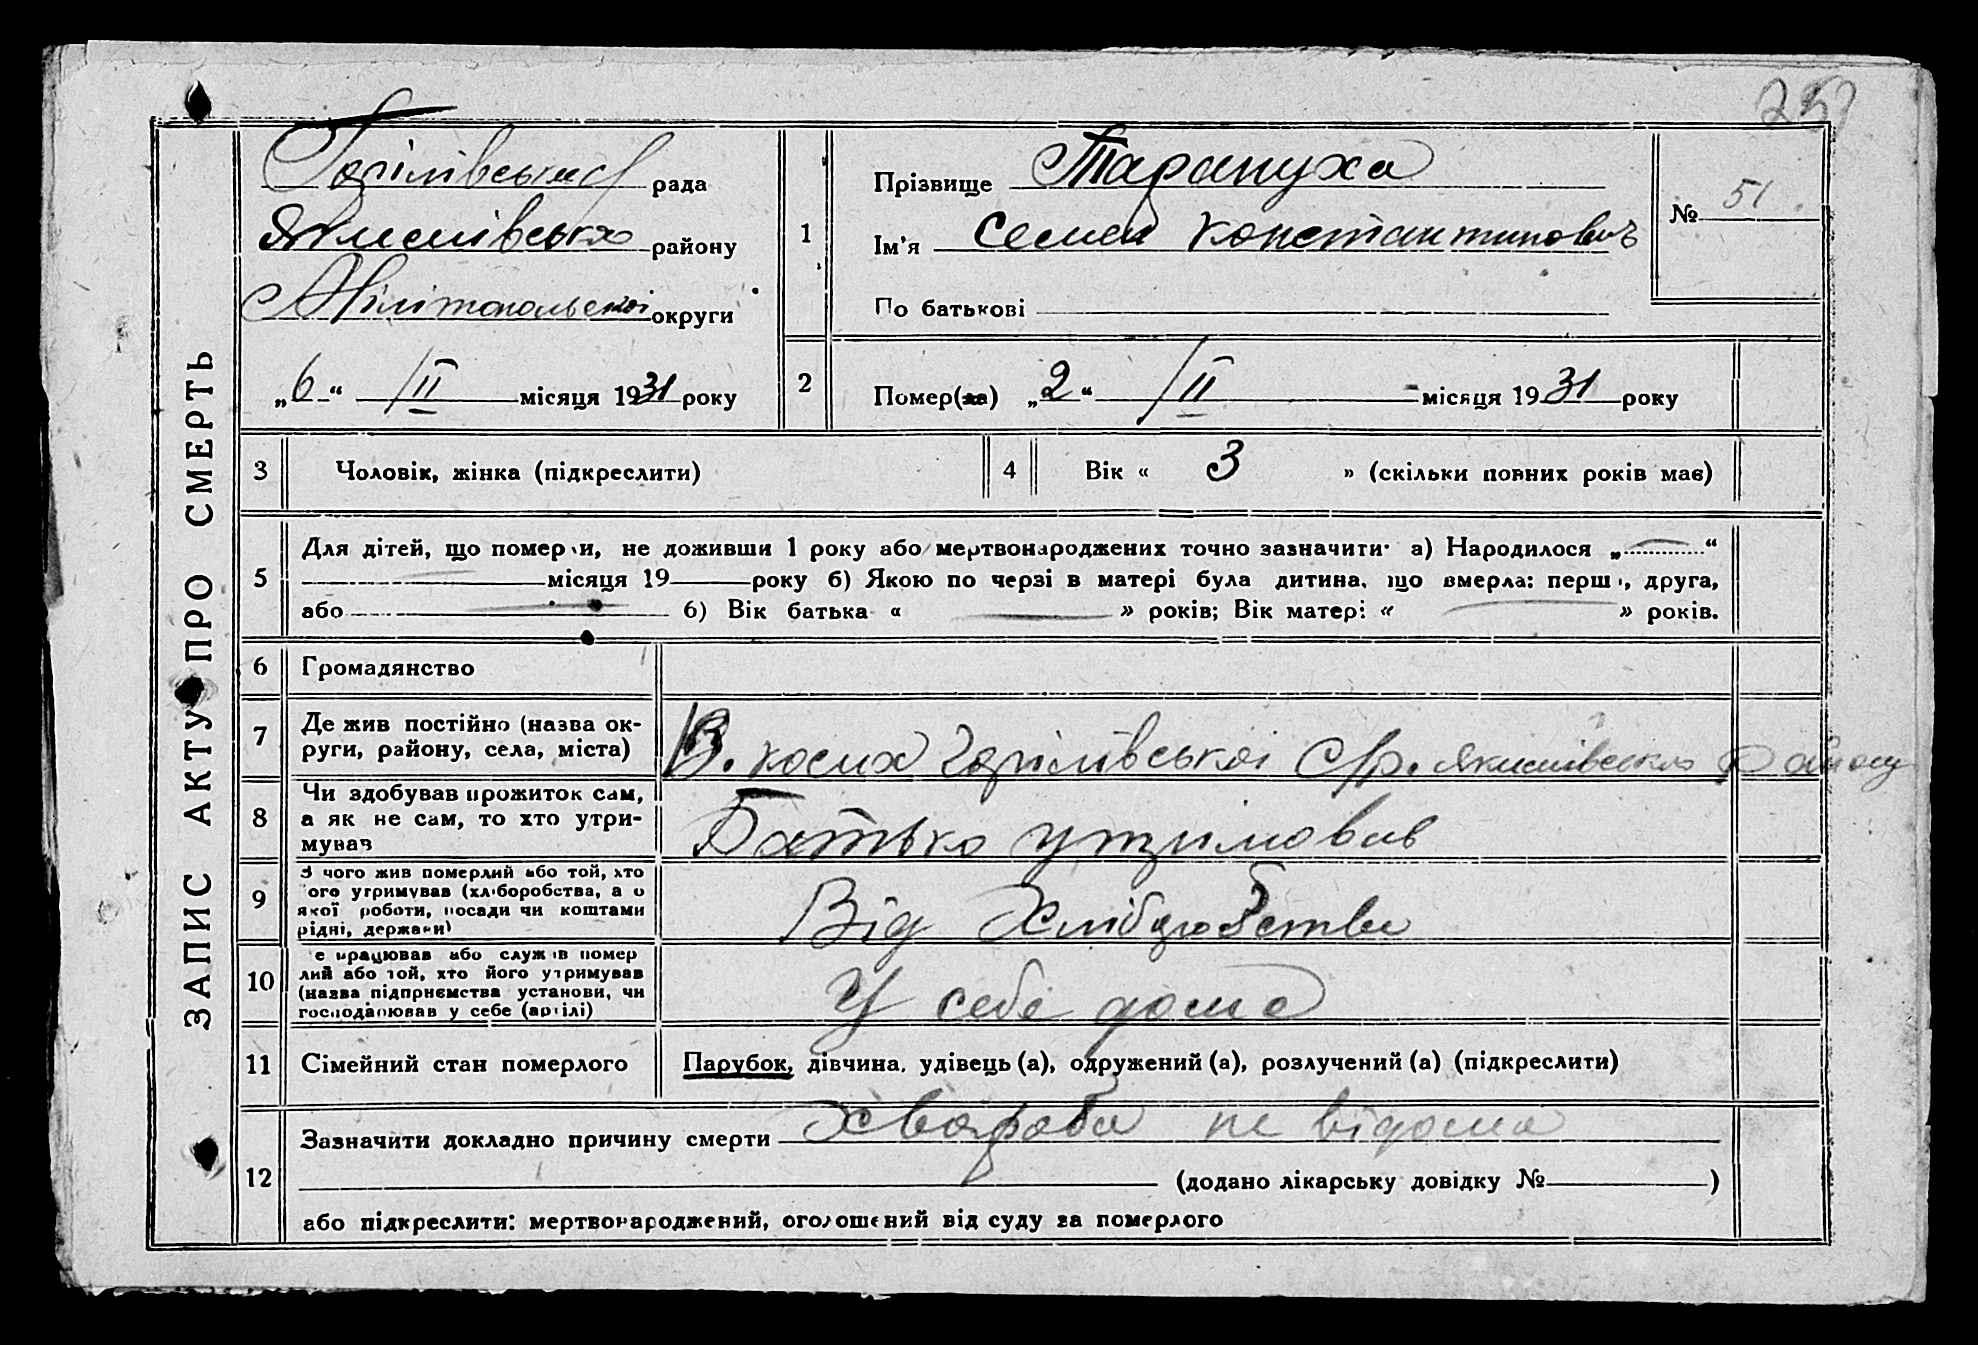 ЗАПИС АКТУ ПРО СМЕРТЬ
Горілівська рада
Якимівська району
Мілітопольскоі округи
„6“ /II місяця 1931 року
1
Прізвище Тарануха
Ім'я Семен Константиновичъ
По батькові
№ 51
2
Помер(ла) „2“ /II місяця 1931 року
3 Чоловік, жінка (підкреслити)
4 Вік « 3 » (скільки повних років має)
5
Для дітей, що померли, не доживши 1 року або мертвонароджених точно зазначити· а) Народилося „ “
місяця 19 року б) Якою по черзі в матері була дитина, що вмерла: перша, друга,
або б) Вік батька « » років; Вік матері « » років.
6 Громадянство
7
Де жив постійно (назва ок-
руги, району, села, міста)
В. Горілівськоі С/р. Якимівского району
8
Чи здобував прожиток сам,
а як не сам, то хто утри-
мував
Батько утримовав
9
З чого жив померлий або той, хто
його утримував (хліборобства, а о
якої роботи, посади чи коштами
рідні, держави)
Від Хліборобства
10
Де працював або служив помер
лий або той, хто його утримував
(назва підприємства установи, чи
господарював у себе (артілі)
У себе дома
11 Сімейний стан померлого
Парубок, дівчина, удівець (а), одружений (а), розлучений (а) (підкреслити)
12
Зазначити докладно причину смерти Хвороба не відома
(додано лікарську довідку № )
або підкреслити: мертвонароджений, оголошений від суду за померлого